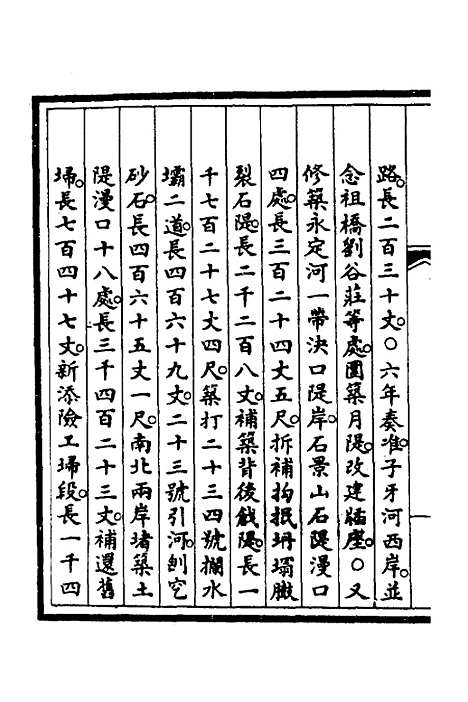 路。長二百三十丈。○六年奏准。子牙河西岸。並
念祖橋劉谷莊等處。圈築月隄。改建牐壂。○又
修築永定河一帶決口隄岸。石景山石隄漫口
四處。長三百二十四丈五尺。拆補抅抿坍塌臌
裂石隄。長二千二百八丈。補築背後戧隄。長一
千七百二十七丈四尺。築打二十三四號攔水
壩二道。長四百六十九丈。二十三號引河。刨空
砂石。長四百六十五丈一尺。南北兩岸堵築土
隄漫口十八處。長三千四百二十三丈。補還舊
埽。長七百四十七丈。新添險工埽段。長一千四